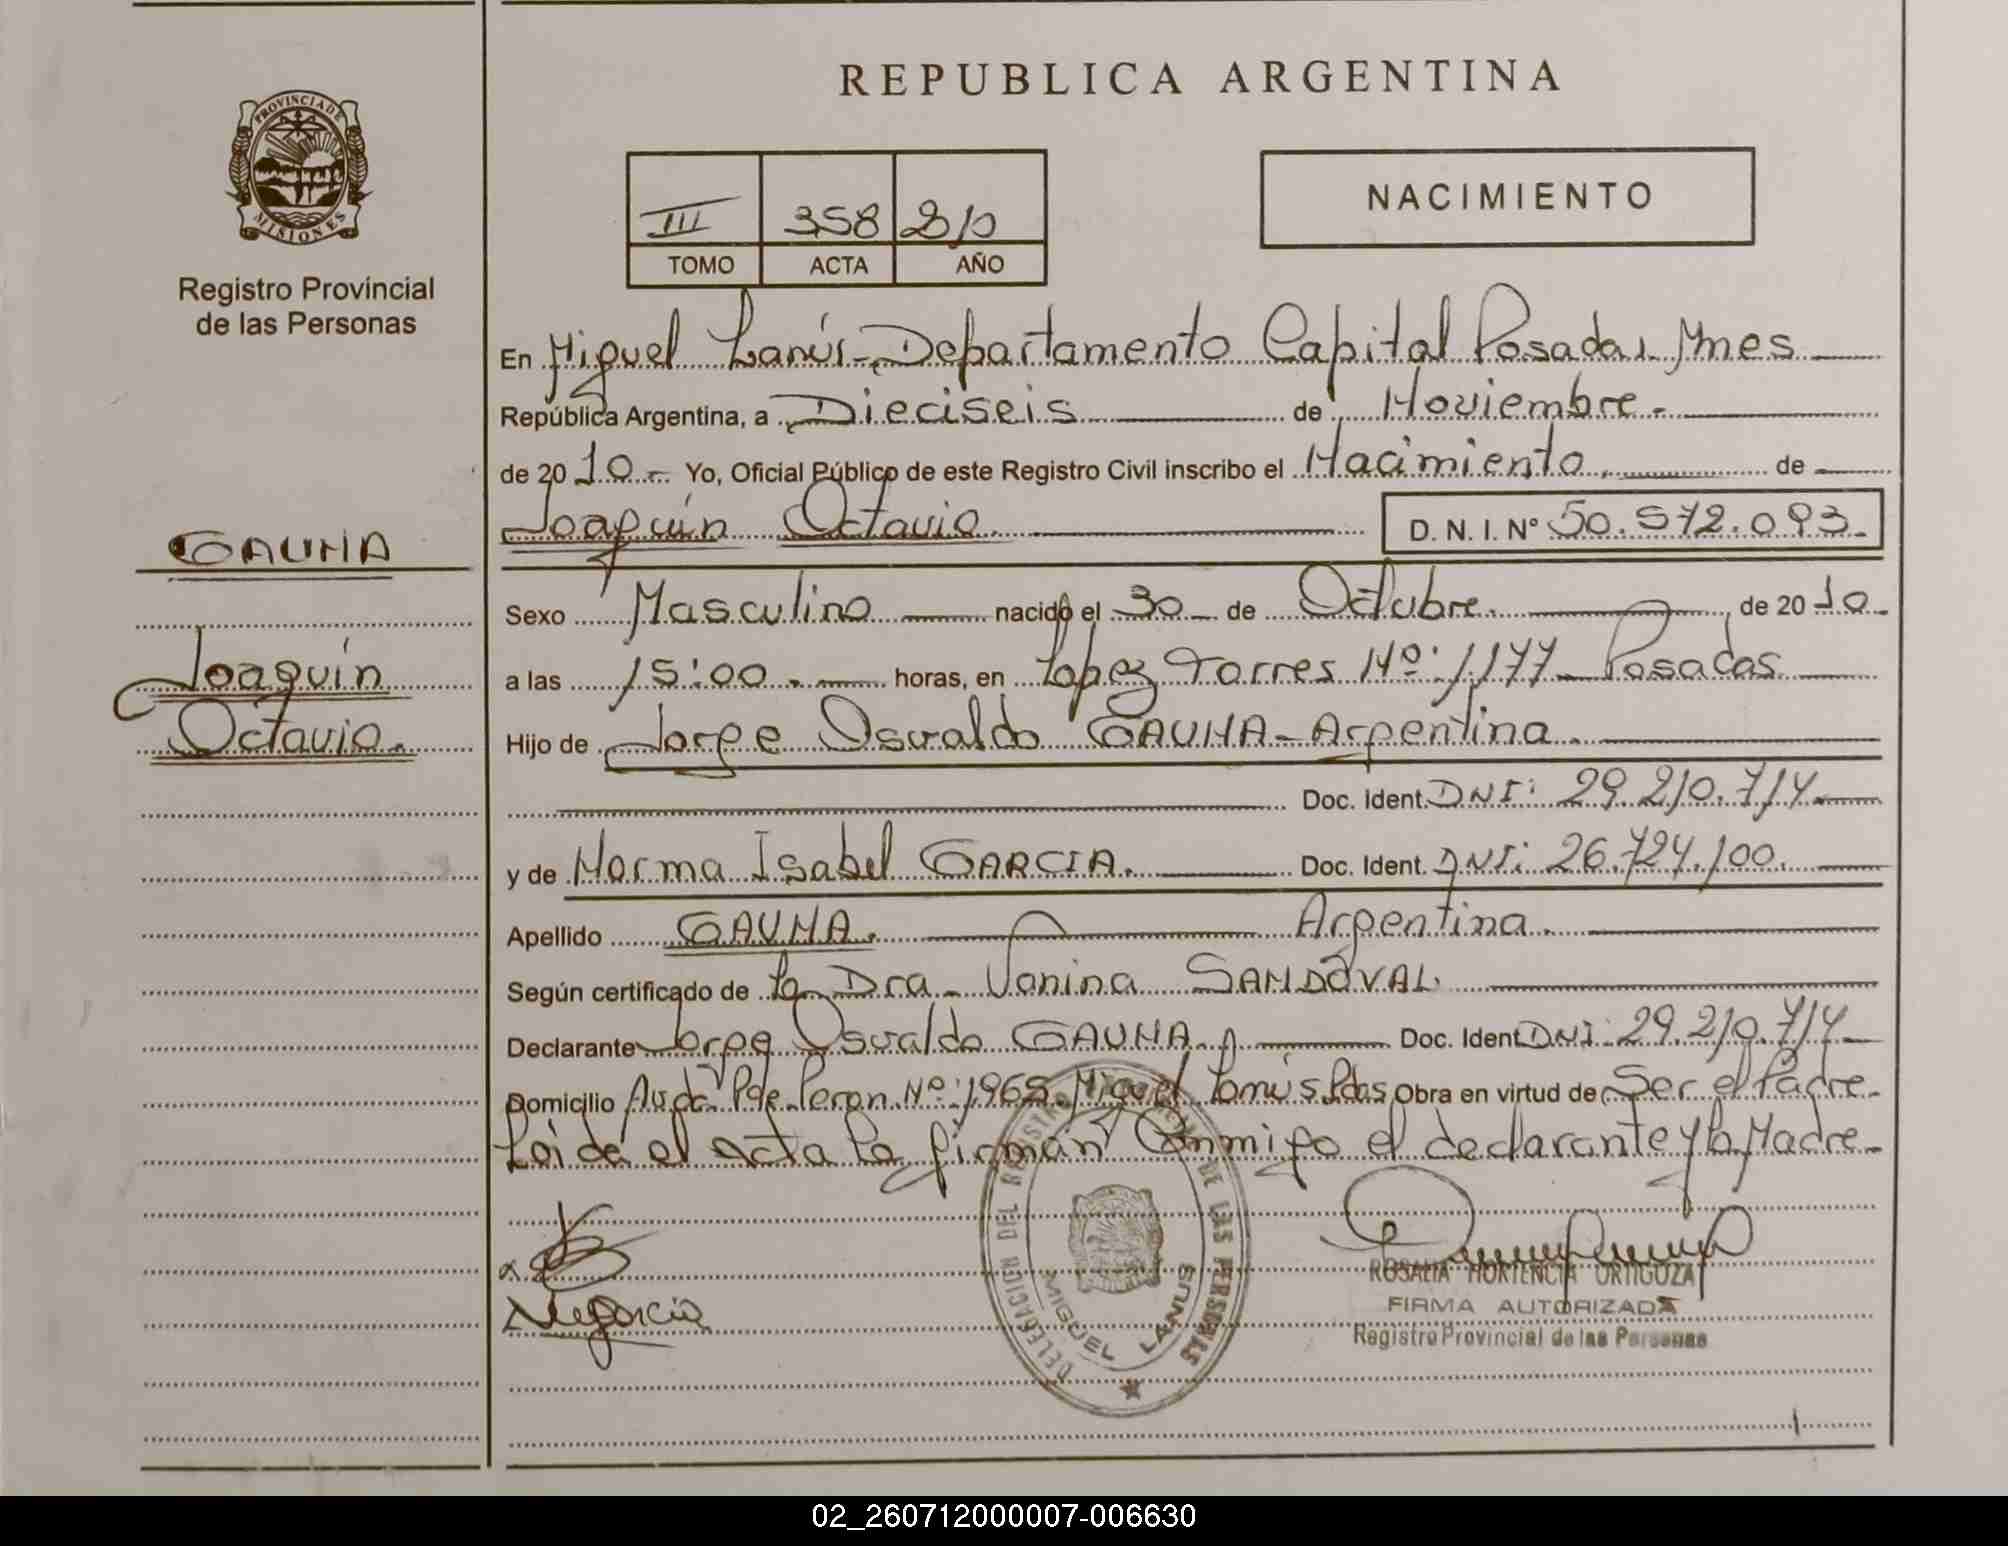 REPUBLICA ARGENTINA
PROVINCIA DE MISIONES
Registro Provincial
de las Personas
NACIMIENTO
III 358 2010
TOMO ACTA AÑO
En Miguel Lanús - Departamento Capital Posadas Mnes
República Argentina, a Dieciseis de Noviembre.
de 2010.- Yo, Oficial Público de este Registro Civil inscribo el Nacimiento. de
Joaquín Octavio. D. N. I. Nº 50.572.093.
GAUNA
Joaquín
Octavio.
Sexo Masculino nacido el 30 de Octubre. de 2010
a las 15:00. horas, en Lopez Torres Nº: 1177 - Posadas
Hijo de Jorge Osvaldo GAUNA - Argentina.
Doc. Ident. DNI: 29.210.714.
y de Norma Isabel GARCIA. Doc. Ident. DNI: 26.724.100.
Apellido GAUNA. Argentina.
Según certificado de la Dra - Vanina SANDOVAL
Declarante Jorge Osvaldo GAUNA. Doc. Ident DNI: 29.210.714
Domicilio Avda Pde Peron Nº: 1965 Miguel Lanús Pdas Obra en virtud de Ser el Padre
Leida el acta la firman Conmigo el declarante y la Madre
DELEGACION DEL REGISTRO DE LAS PERSONAS
MIGUEL LANUS
ROSALIA HORTENCIA ORTIGOZA
FIRMA AUTORIZADA
Registro Provincial de las Personas
02_260712000007-006630